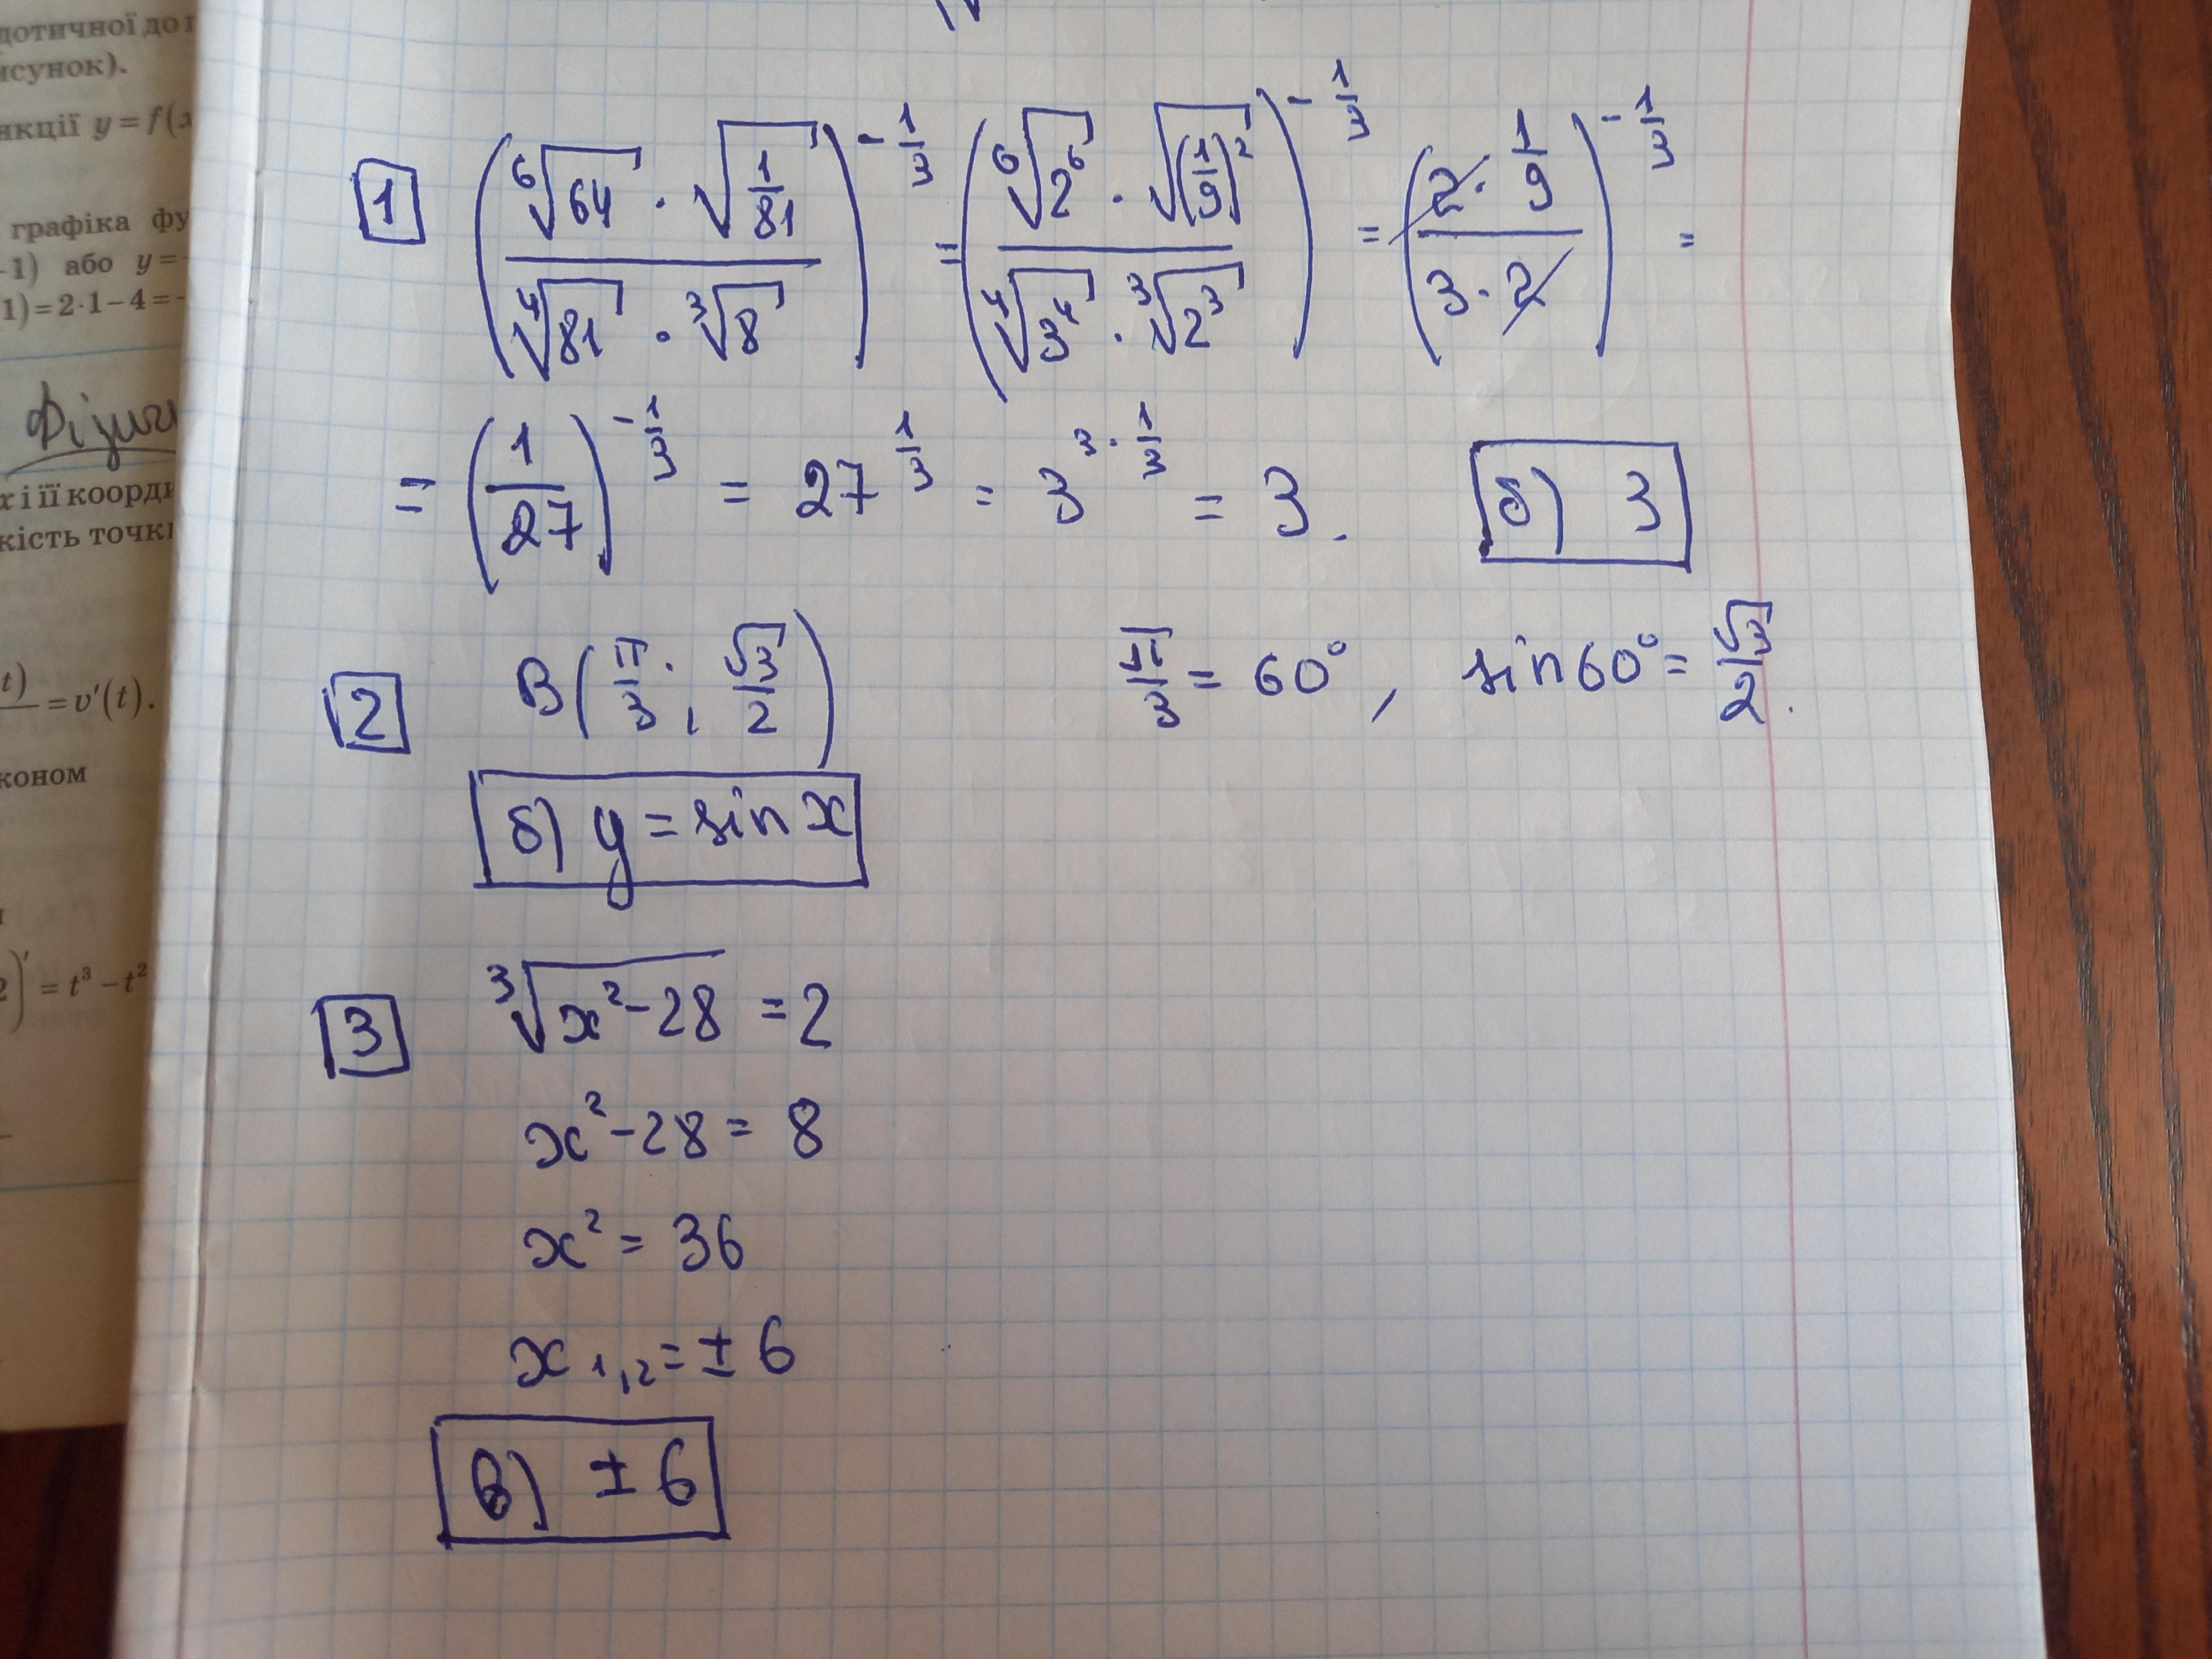 дотичної до
исунок).
нкції y = f(x
графіка фу
-1) або y = -
1) = 2·1 – 4 = -
Фізич
x і її коорди
кість точки
t)
— = v′(t).
коном
2)′ = t³ – t²
1 (⁶√64 · √(1/81) / (⁴√81 · ³√8))^(-1/3) = (⁶√2⁶ · √((1/9)²) / (⁴√3⁴ · ³√2³))^(-1/3) = (2 · 1/9 / (3 · 2))^(-1/3) =
= (1/27)^(-1/3) = 27^(1/3) = 3^(3 · 1/3) = 3. б) 3
2 B(π/3 ; √3/2) π/3 = 60°, sin 60° = √3/2.
б) y = sin x
3 ³√(x² - 28) = 2
x² - 28 = 8
x² = 36
x 1,2 = ± 6
в) ± 6